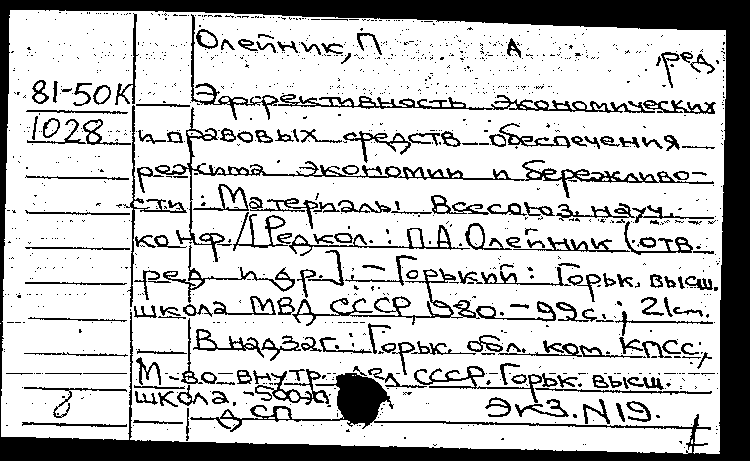 Олейник, П А ,ред.
81-50К Эффективность экономических
1028 и правовых средств обеспечения
режима экономии и бережливо-
сти : Материалы Всесоюз. науч.
конф./[Редкол.: П.А.Олейник (отв.
ред и др.]. – Горький : Горьк. высш.
школа МВД СССР, 1980. – 99с. ; 21см.
В надзаг. : Горьк. обл. ком. КПСС,
М-во внутр. дел СССР. Горьк. высш.
школа. -500э
Д СП Экз. N19.